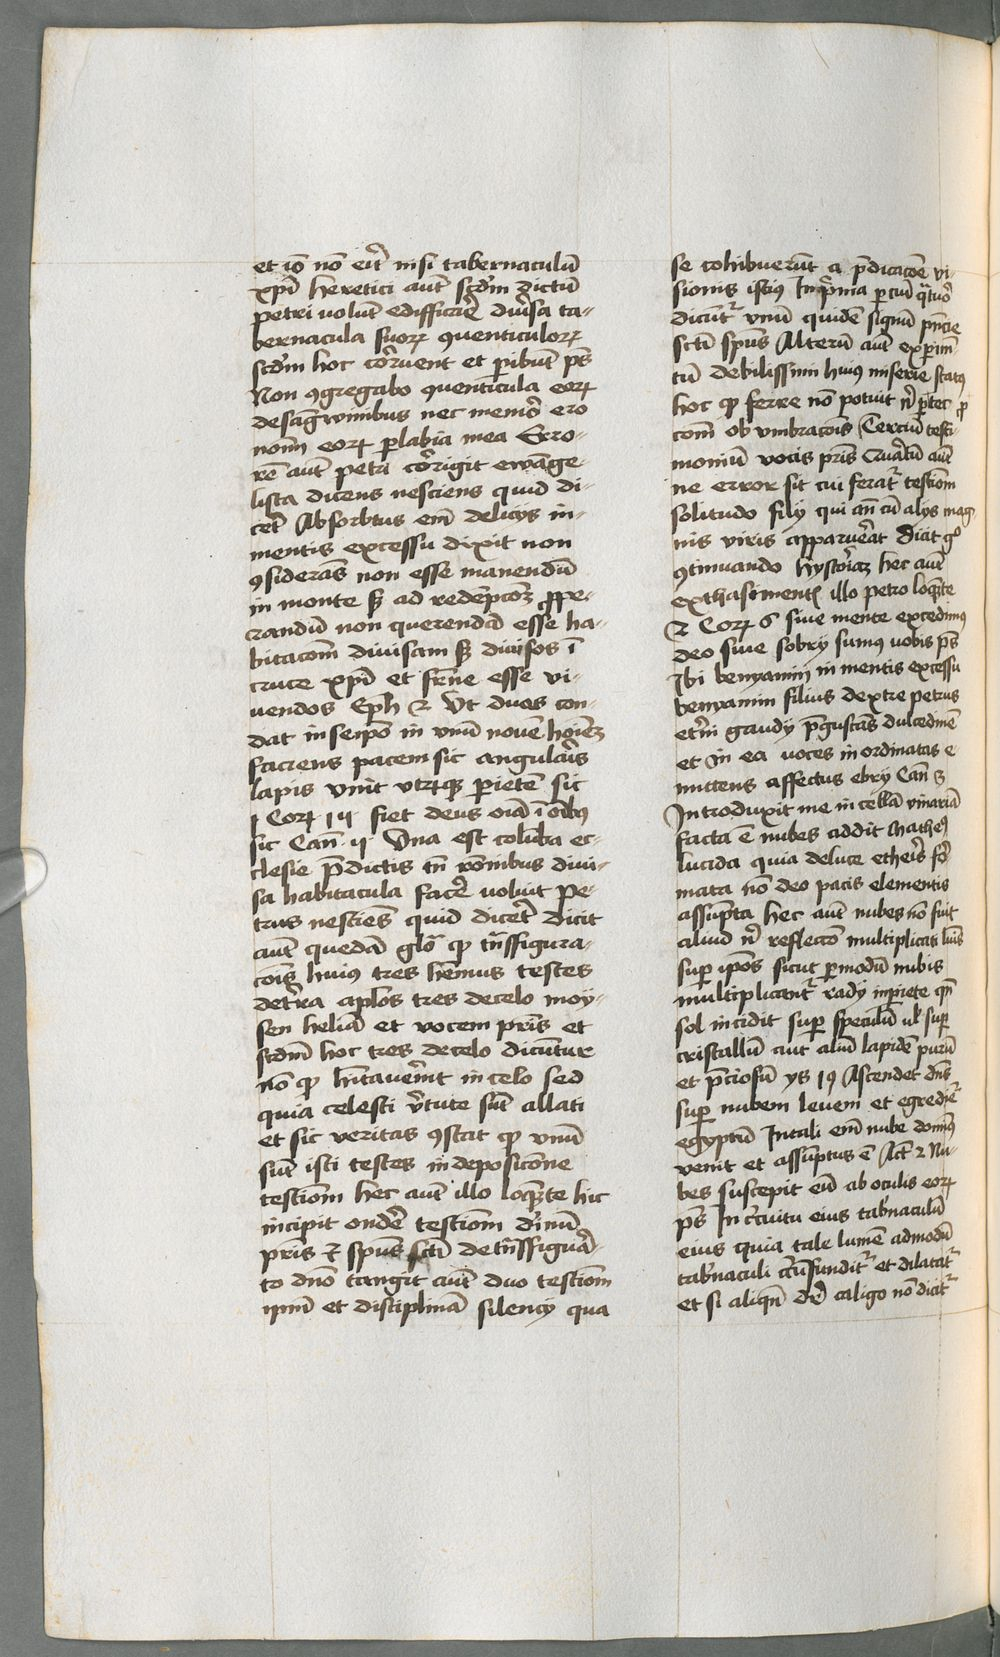 et iō nō eīt nisi tabernaculū
xpī heretici aūt scdm dictū
petri volūt edifficaē diūsa ta-
bernacula suoꝝ quenticuloꝝ
scdm hoc corruent et peribūt pˢ
Non ꝯgregabo quenticula eoꝝ
de sangwinibus nec memō ero
nomī eoꝝ per labia mea Erro-
rē aūt petri corrigit ewāge-
lista dicens nesciens quid di-
ceēt Absorbtus em̄ delicijs in
mentis excessu dixit non
ꝯsiderās non esse manendū
in monte sꝫ ad redēpcōꝫ ꝓpe-
randū non querendā esse ha-
bitacōm diuisam sꝫ diuisos ī
cruce xpm̄ et frēne esse vi-
uendos Eph 2 Vt duos con-
dat in seipō in vnū nouē hoīeꝫ
faciens pacem sic angulaīs
lapis vnit vtrqꝫ pietē sic
1 Coꝝ 14 fiet deus oīa ī oībꝯ
sic Can̄ 11 Vna est colūba ec-
clesie p̄dictis tn̄ rōnibus diui-
sa habitacula facē voluit pe-
trus nesciēs quid diceēt dicit
aūt quedā glōꝰ ꝙ tn̄sfigura-
cōis huius tres hēmus testes
de tr̄ra aplōs tres de celo moy-
sen heliā et vocem pris et
scdm hoc tres de celo dicuntur
nō ꝙ hītauerīnt in celo sed
quia celesti vr̄tute sūt allati
et sic veritas ꝯstat ꝙ vnū
sūt isti testes in deposicōne
testiom̄ hec aūt illo loqn̄te hic
incipit ondē testiom̄ dīnū
pris ꝛ spūs sctī de tn̄sfiguā-
to dnō tangit aūt duo testiom̄
ipm̄ et disciplinā silencij qua
se cohibuerūt a p̄dicacōe vi-
sionis istius In p̄ma pte cm̄ qͣtuoꝛ
dicūtꝰ vnū quidē signū pn̄cie
sctī spūs Alterū aūt experim̄-
tū debilissimi huiꝰ miserie statꝰ
hoc ꝙ ferre nō potuit nˡ p̄tec
cōm ob vmbracōis Terciū testi-
moniū vocis pris Quartū aūt
ne error sit cui feratꝰ testiom̄
solitudo filij qui an̄ cū alijs mag
nis viris apparuēat Dicit gͦ
ꝯtinuando hystoriaꝫ hec aūt
exthasi mentꝭ illo petro loqn̄te
2 Coꝝ 6 siue mente excedimꝰ
deo siue sobrij sumꝰ uobis pˢ
Ibi benyamin in mentis excessu
benyamin filius dextre petrus
etīni gaudij p̄gustās dulcedinē
et in ea voces inordinatas e
mittens affectus ebrij Can̄ 5
Introduxit me in cellā vinariā
facta ē nubes addit Matheꝰ
lucida quia de luce etheis foꝛ
mata nō deo pacis elementis
assūpta hec aūt nubes nō fuit
aliud nˡ reflectō multiplicati lumīs
super ipōs sicut per modū nubis
multiplicantꝰ radij in piete qn̄
sol incidit super speculū uˡ super
cristallū aut aliū lapidē purū
et p̄ciosū ys 19 Ascendet dn̄s
super nubem leuem et egredieꝰ
egyptū In tali em̄ nube dominꝰ
venit et assūptus ē Act 2 Nu-
bes suscepit eū ab oculis eoꝝ
pˢ In c̄cuitu eius tabr̄naculū
eius quia tale lumē ad modū
tabr̄naculi circūfunditꝰ et dilatatꝰ
et si aliqn̄ dr̄ caligo nō dicitꝰ